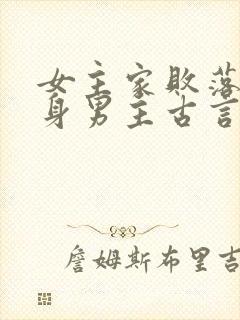 女主家败落
身男主古言
詹姆斯布里吉